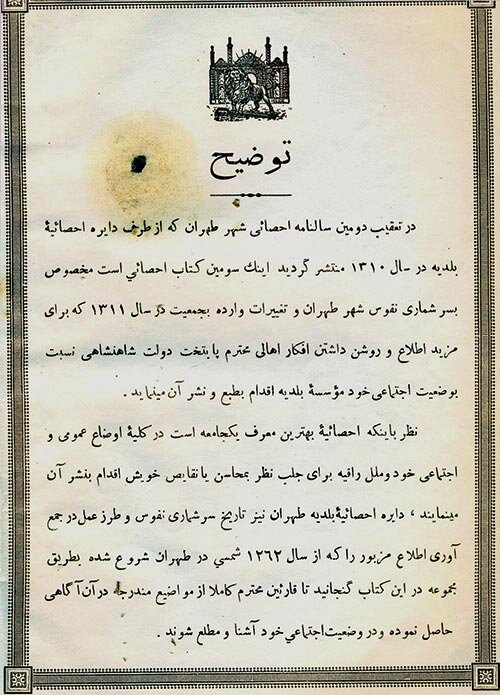 توضیح
در تعقیب دومین سالنامه احصائی شهر طهران که از طرف دایره احصائیهٔ
بلدیه در سال ۱۳۱۰ منتشر گردید اینك سومین کتاب احصائی است مخصوص
بسر شماری نفوس شهر طهران و تغییرات وارده بجمعیت در سال ۱۳۱۱ که برای
مزید اطلاع و روشن داشتن افکار اهالی محترم پایتخت دولت شاهنشاهی نسبت
بوضعیت اجتماعی خود مؤسسهٔ بلدیه اقدام بطبع و نشر آن مینماید .
نظر باینکه احصائیهٔ بهترین معرف یکجامعه است در کلیهٔ اوضاع عمومی و
اجتماعی خود و ملل راقیه برای جلب نظر بمحاسن یا نقایص خویش اقدام بنشر آن
مینمایند ، دایره احصائیهٔ بلدیه طهران نیز تاریخ سرشماری نفوس و طرز عمل در جمع
آوری اطلاع مزبور را که از سال ۱۲۶۲ شمسی در طهران شروع شده بطریق
مجموعه در این کتاب گنجانید تا قارئین محترم کاملا از مواضیع مندرجه در آن آگاهی
حاصل نموده و در وضعیت اجتماعی خود آشنا و مطلع شوند .